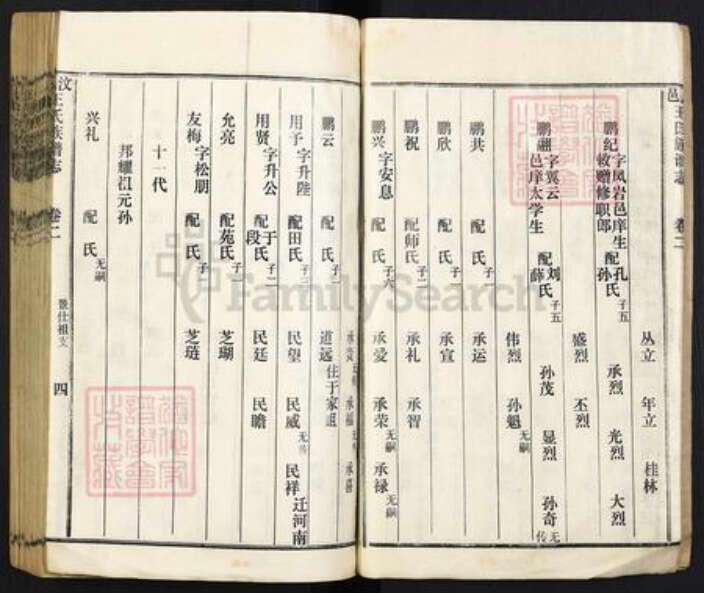 王氏族谱志 卷二
丛立 年立 桂林
鹏纪 字凤岩邑庠生 敕赠修职郎 配孔氏 孙 子五 承烈 光烈 大烈
盛烈 丕烈
鹏翮 字翼云 邑庠太学生 配刘氏 薛 子五 孙茂 显烈 孙奇 无传
伟烈 孙魁 无嗣
鹏共 配 氏 子一 承运
鹏欣 配 氏 子一 承宣
鹏祝 配师氏 子二 承礼 承智
鹏兴 字安息 配 氏 子六 承爱 承荣 无嗣 承禄 无嗣
承福 承喜
鹏云 配 氏 子一 道远 住于家道
用予 字升陛 配田氏 子三 民望 民威 无传 民祥 迁河南
用贤 字升公 配于氏 段 子二 民廷 民瞻
允亮 配苑氏 子一 芝瑚
友梅 字松朋 配 氏 子一 芝琏
十一代
邦耀祖元孙
兴礼 配 氏 无嗣
汶王氏族谱志 卷二 景仕祖支 四
FamilySearch